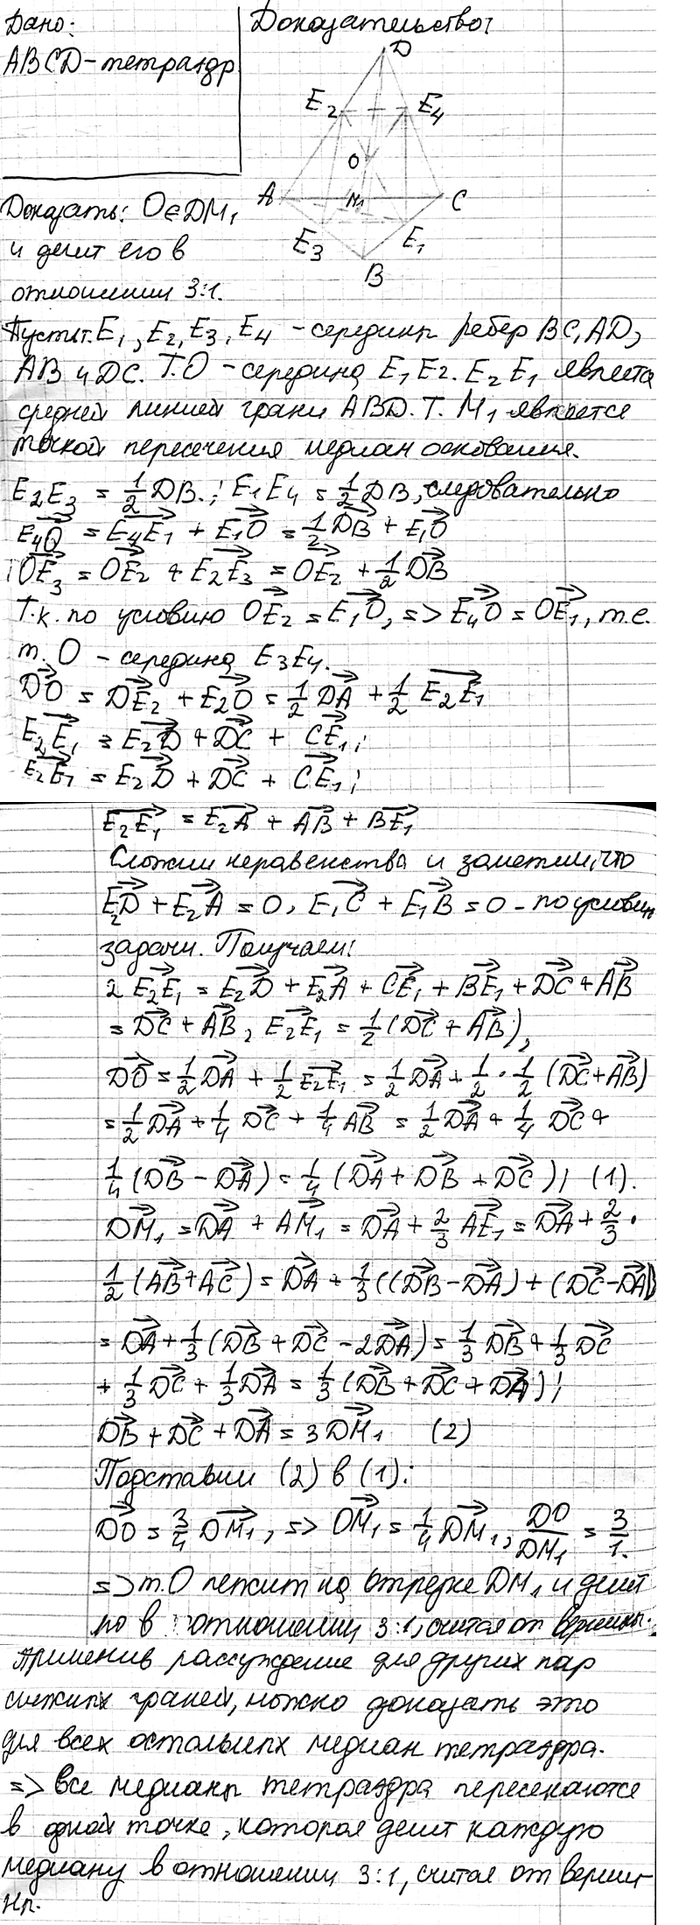 Дано:
ABCD - тетраэдр.
Доказать: O∈DM₁
и делит его в
отношении 3:1.
Доказательство:
D
E₂
E₄
O
A
M₁
C
E₃
E₁
B
Пусть т. E₁, E₂, E₃, E₄ - середины ребер BC, AD,
AB и DC. Т. O - середина E₁E₂. E₂E₁ является
средней линией грани ABD. Т. M₁ является
точкой пересечения медиан основания.
E₂E₃ = 1/2 DB.; E₁E₄ = 1/2 DB, следовательно
E₄O = E₄E₁ + E₁O = 1/2 DB + E₁O
OE₃ = OE₂ + E₂E₃ = OE₂ + 1/2 DB
Т.к. по условию OE₂ = E₁O, => E₄O = OE₁, т.е.
т. O - середина E₃E₄.
DO = DE₂ + E₂O = 1/2 DA + 1/2 E₂E₁
E₂E₁ = E₂D + DC + CE₁;
E₂E₁ = E₂D + DC + CE₁;
E₂E₁ = E₂A + AB + BE₁
Сложим неравенства и заметим, что
E₂D + E₂A = 0, E₁C + E₁B = 0 - по условию
задачи. Получаем:
2 E₂E₁ = E₂D + E₂A + CE₁ + BE₁ + DC + AB
= DC + AB, E₂E₁ = 1/2 (DC + AB),
DO = 1/2 DA + 1/2 E₂E₁ = 1/2 DA + 1/2 · 1/2 (DC + AB)
= 1/2 DA + 1/4 DC + 1/4 AB = 1/2 DA + 1/4 DC +
1/4 (DB - DA) = 1/4 (DA + DB + DC); (1).
DM₁ = DA + AM₁ = DA + 2/3 AE₁ = DA + 2/3 ·
1/2 (AB + AC) = DA + 1/3 ((DB - DA) + (DC - DA))
= DA + 1/3 (DB + DC - 2DA) = 1/3 DB + 1/3 DC
+ 1/3 DC + 1/3 DA = 1/3 (DB + DC + DA);
DB + DC + DA = 3 DM₁ (2)
Подставим (2) в (1):
DO = 3/4 DM₁, => OM₁ = 1/4 DM₁, DO/DM₁ = 3/1.
=> т. O лежит на отрезке DM₁ и делит
по в отношении 3:1, считая от вершины.
Применив рассуждение для других пар
смежных граней, можно доказать это
для всех остальных медиан тетраэдра.
=> все медианы тетраэдра пересекаются
в одной точке, которая делит каждую
медиану в отношении 3:1, считая от верши-
ны.